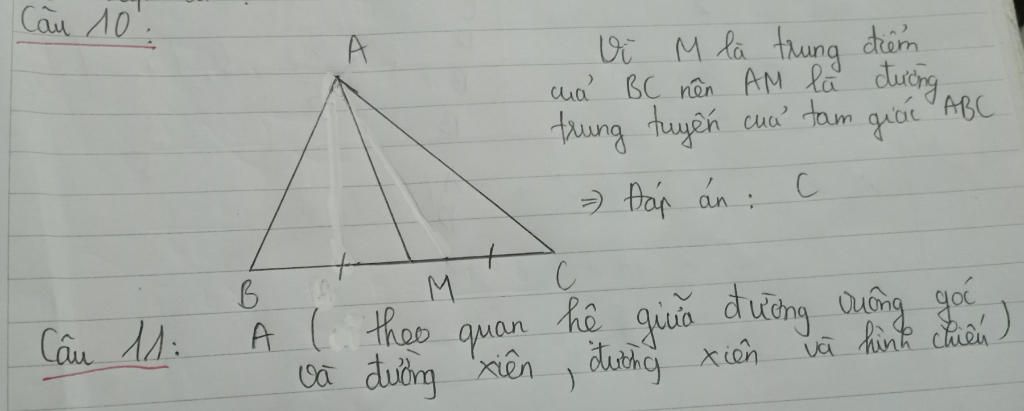 Câu 10:
A
Vì M là trung điểm
của BC nên AM là đường
trung tuyến của tam giác ABC
⇒ Đáp án: C
B M C
Câu 11: A ( theo quan hê giữa đường vuông góc
và đường xiên, đường xiên và hình chiếu)